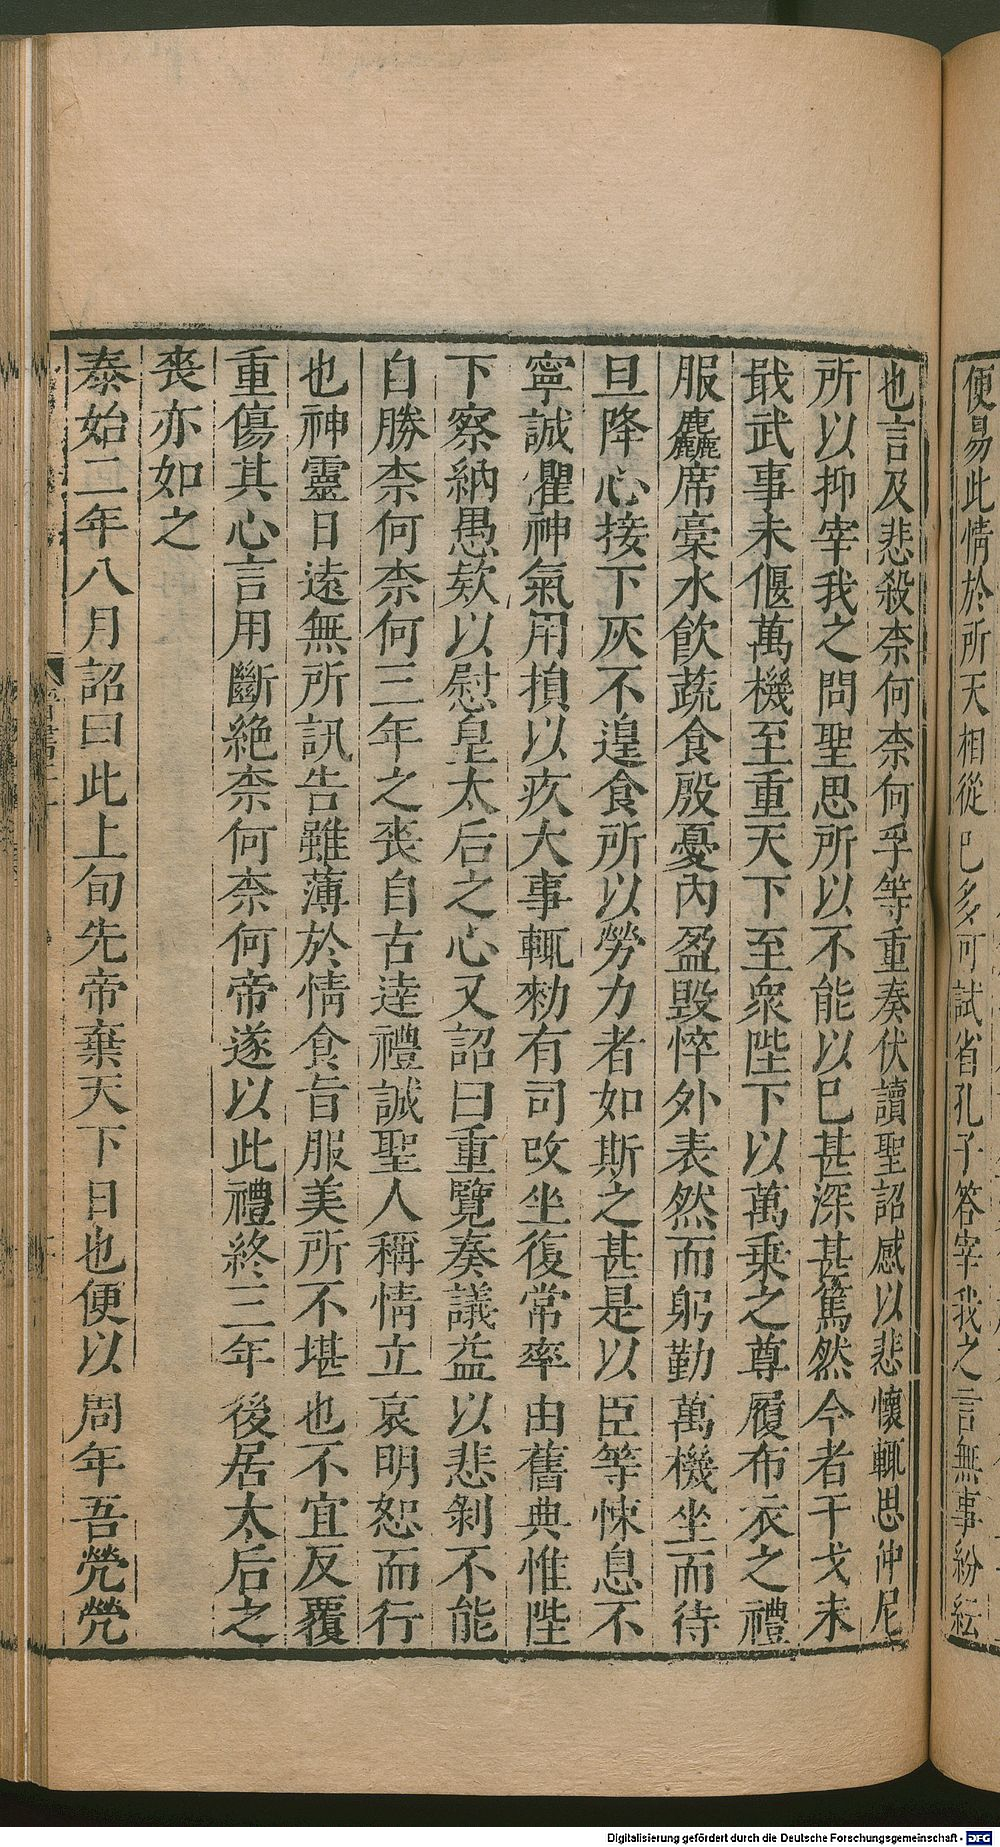 便易此情於所天相從已多可試省孔子答宰我之言無事紛紜
也言及悲殺柰何柰何孚等重奏伏讀聖詔感以悲懷輒思仲尼
所以抑宰我之問聖思所以不能以巳甚深甚篤然今者干戈未
戢武事未偃萬機至重天下至衆陛下以萬乗之尊履布衣之禮
服麤席槀水飲蔬食殷憂內盈毀悴外表然而躬勤萬機坐而待
旦降心接下仄不遑食所以勞力者如斯之甚是以臣等悚息不
寧誠懼神氣用損以疚大事輒勑有司攺坐復常率由舊典惟陛
下察納愚欵以慰皇太后之心又詔曰重覽奏議益以悲剝不能
自勝柰何柰何三年之喪自古達禮誠聖人稱情立哀明恕而行
也神靈日遠無所訊告雖薄於情食旨服美所不堪也不宜反覆
重傷其心言用斷絶柰何柰何帝遂以此禮終三年後居太后之
喪亦如之
泰始二年八月詔曰此上旬先帝棄天下日也便以周年吾煢煢
Digitalisierung gefördert durch die Deutsche Forschungsgemeinschaft - DFG